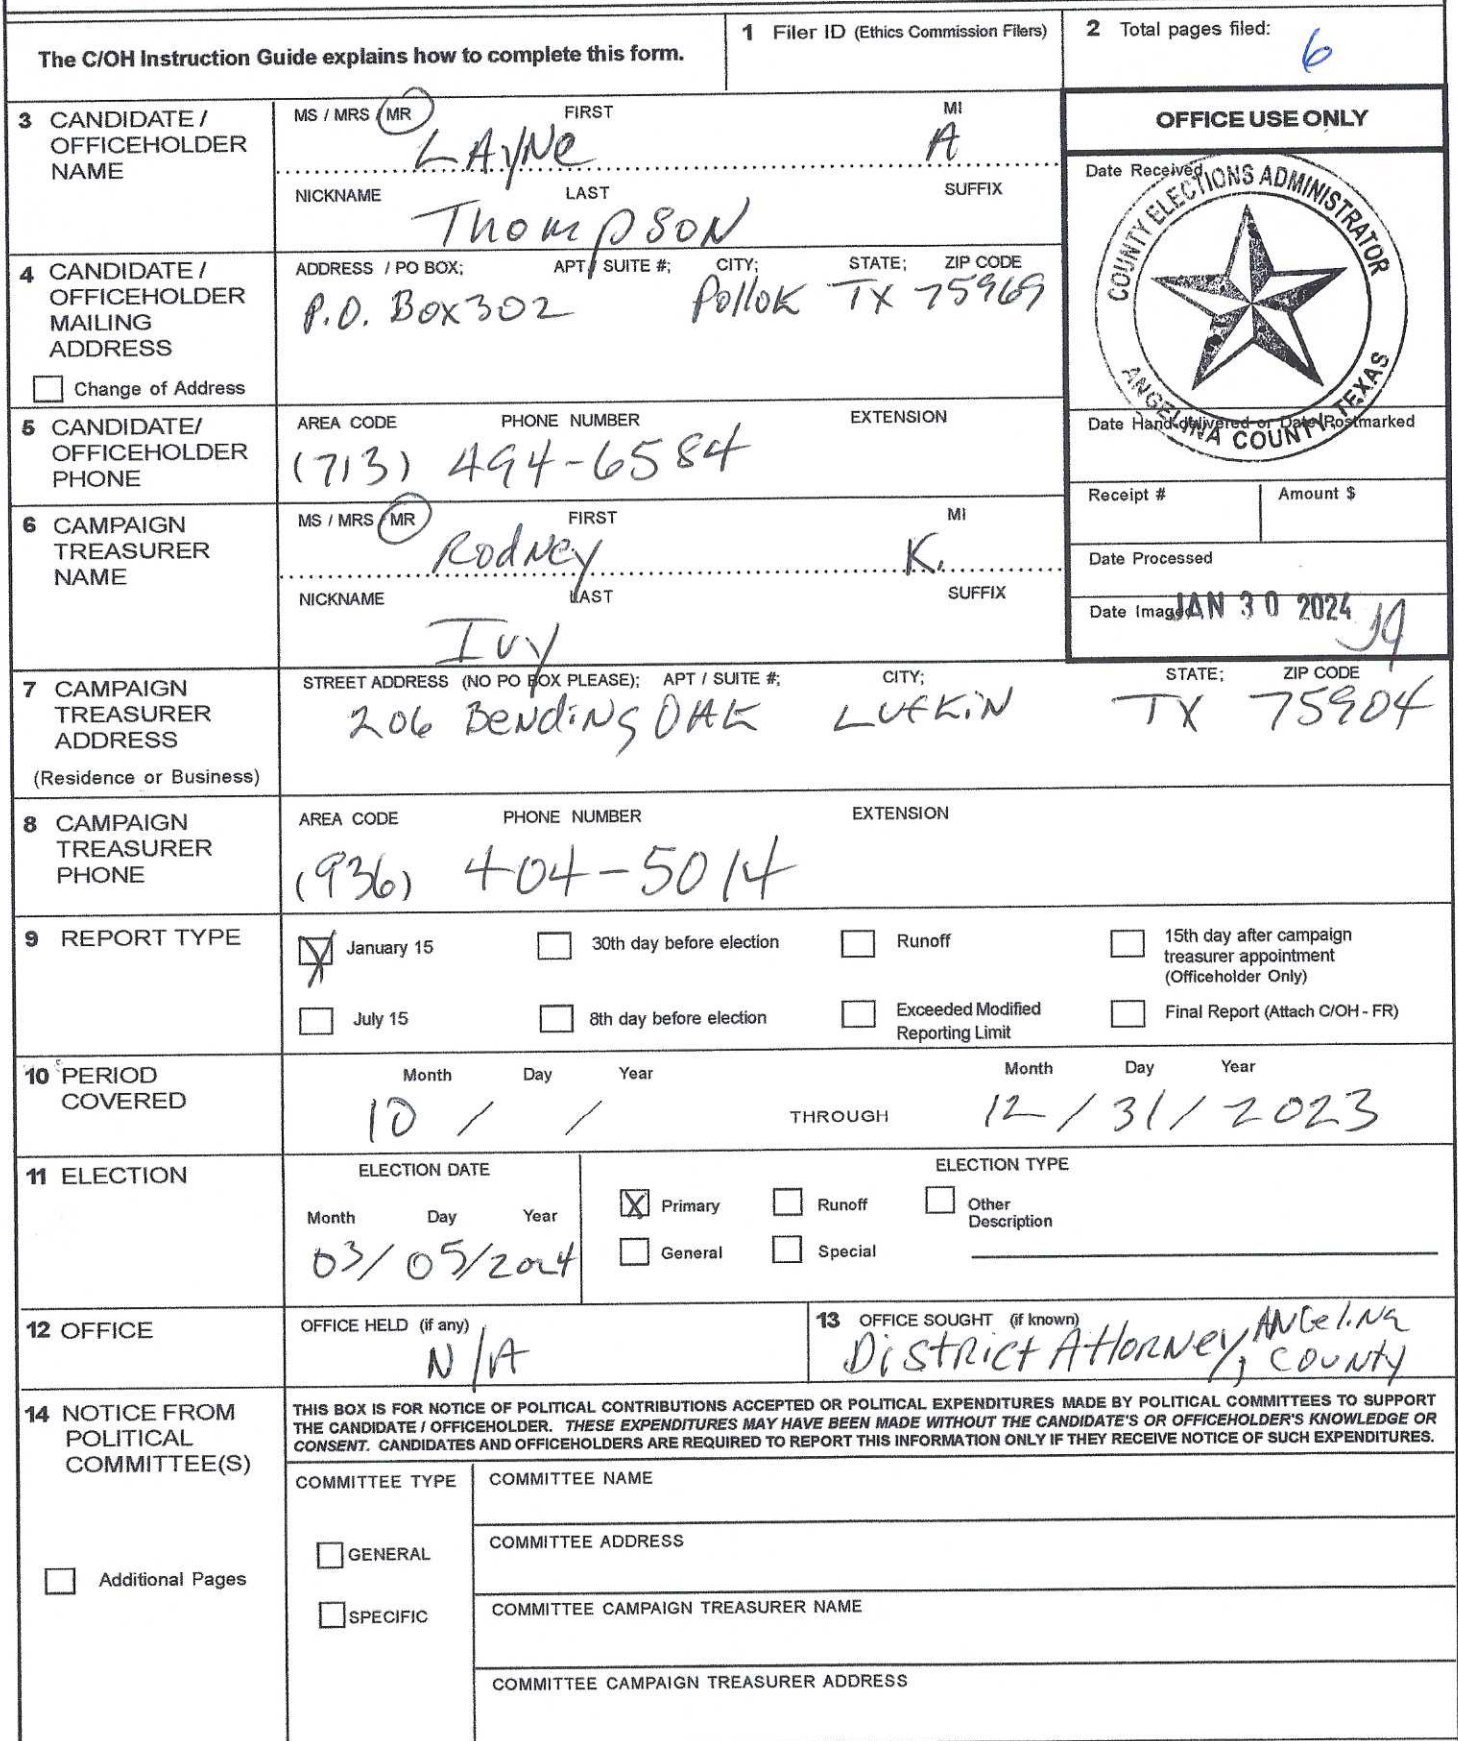 The C/OH Instruction Guide explains how to complete this form.
1 Filer ID (Ethics Commission Filers)
2 Total pages filed:
6
3 CANDIDATE / OFFICEHOLDER NAME
MS / MRS / MR FIRST MI
LAYNe A
NICKNAME LAST SUFFIX
Thompson
OFFICE USE ONLY
Date Received
COUNTY ELECTIONS ADMINISTRATOR
ANGELINA COUNTY, TEXAS
4 CANDIDATE / OFFICEHOLDER MAILING ADDRESS
Change of Address
ADDRESS / PO BOX; APT / SUITE #; CITY; STATE; ZIP CODE
P.O. Box 302 Pollok TX 75969
Date Hand-delivered or Date Postmarked
5 CANDIDATE/ OFFICEHOLDER PHONE
AREA CODE PHONE NUMBER EXTENSION
(713) 494-6584
Receipt # Amount $
6 CAMPAIGN TREASURER NAME
MS / MRS / MR FIRST MI
Rodney K.
NICKNAME LAST SUFFIX
Ivy
Date Processed
Date Imaged
JAN 30 2024
7 CAMPAIGN TREASURER ADDRESS
(Residence or Business)
STREET ADDRESS (NO PO BOX PLEASE); APT / SUITE #; CITY; STATE; ZIP CODE
206 Bending OAK LUFKiN TX 75904
8 CAMPAIGN TREASURER PHONE
AREA CODE PHONE NUMBER EXTENSION
(936) 404-5014
9 REPORT TYPE
X January 15
30th day before election
Runoff
15th day after campaign treasurer appointment (Officeholder Only)
July 15
8th day before election
Exceeded Modified Reporting Limit
Final Report (Attach C/OH - FR)
10 PERIOD COVERED
Month Day Year
10 / /
THROUGH
Month Day Year
12 / 31 / 2023
11 ELECTION
ELECTION DATE
Month Day Year
03/05/2024
ELECTION TYPE
X Primary
Runoff
Other Description
General
Special
12 OFFICE
OFFICE HELD (if any)
N/A
13 OFFICE SOUGHT (if known)
District Attorney, Angelina County
14 NOTICE FROM POLITICAL COMMITTEE(S)
THIS BOX IS FOR NOTICE OF POLITICAL CONTRIBUTIONS ACCEPTED OR POLITICAL EXPENDITURES MADE BY POLITICAL COMMITTEES TO SUPPORT
THE CANDIDATE / OFFICEHOLDER. THESE EXPENDITURES MAY HAVE BEEN MADE WITHOUT THE CANDIDATE'S OR OFFICEHOLDER'S KNOWLEDGE OR
CONSENT. CANDIDATES AND OFFICEHOLDERS ARE REQUIRED TO REPORT THIS INFORMATION ONLY IF THEY RECEIVE NOTICE OF SUCH EXPENDITURES.
Additional Pages
COMMITTEE TYPE
GENERAL
SPECIFIC
COMMITTEE NAME
COMMITTEE ADDRESS
COMMITTEE CAMPAIGN TREASURER NAME
COMMITTEE CAMPAIGN TREASURER ADDRESS